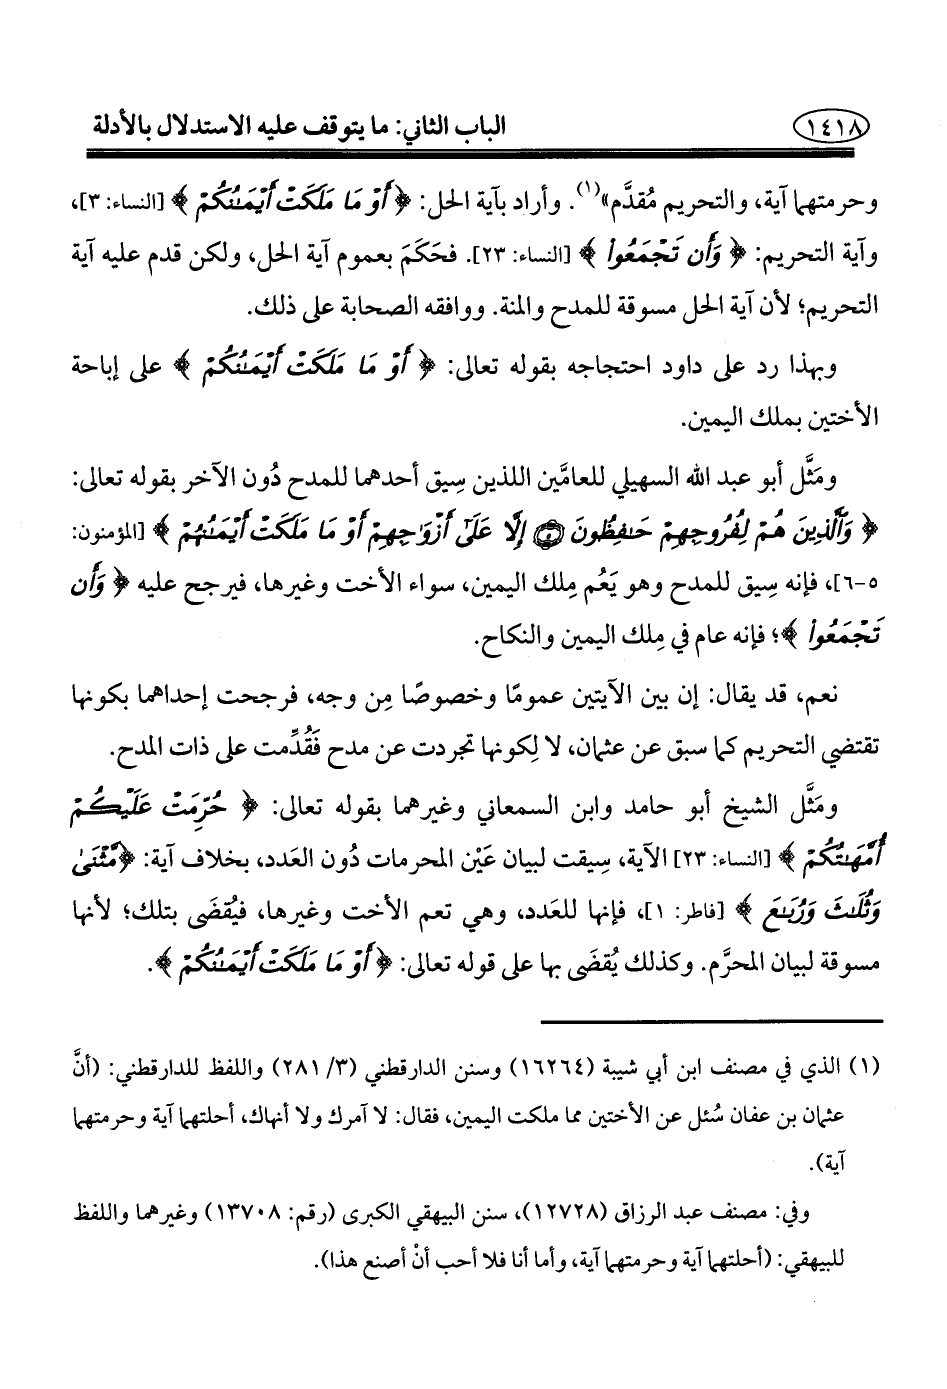 ١٤١٨ الباب الثاني: ما يتوقف عليه الاستدلال بالأدلة
وحرمتهما آية، والتحريم مُقدَّم»(١). وأراد بآية الحل: ﴿أَوْ مَا مَلَكَتْ أَيْمَٰنُكُمْ﴾ [النساء: ٣]،
وآية التحريم: ﴿وَأَن تَجْمَعُوا۟﴾ [النساء: ٢٣]. فحَكَمَ بعموم آية الحل، ولكن قدم عليه آية
التحريم؛ لأن آية الحل مسوقة للمدح والمنة. ووافقه الصحابة على ذلك.
وبهذا رد على داود احتجاجه بقوله تعالى: ﴿أَوْ مَا مَلَكَتْ أَيْمَٰنُكُمْ﴾ على إباحة
الأختين بملك اليمين.
ومَثَّل أبو عبد الله السهيلي للعامَّين اللذين سِيق أحدهما للمدح دُون الآخر بقوله تعالى:
﴿وَٱلَّذِينَ هُمْ لِفُرُوجِهِمْ حَٰفِظُونَ ۝ إِلَّا عَلَىٰٓ أَزْوَٰجِهِمْ أَوْ مَا مَلَكَتْ أَيْمَٰنُهُمْ﴾ [المؤمنون:
٥-٦]، فإنه سِيق للمدح وهو يَعُم مِلك اليمين، سواء الأخت وغيرها، فيرجح عليه ﴿وَأَن
تَجْمَعُوا۟﴾؛ فإنه عام في مِلك اليمين والنكاح.
نعم، قد يقال: إن بين الآيتين عمومًا وخصوصًا مِن وجه، فرجحت إحداهما بكونها
تقتضي التحريم كما سبق عن عثمان، لا لِكونها تجردت عن مدح فَقُدِّمت على ذات المدح.
ومَثَّل الشيخ أبو حامد وابن السمعاني وغيرهما بقوله تعالى: ﴿حُرِّمَتْ عَلَيْكُمْ
أُمَّهَٰتُكُمْ﴾ [النساء: ٢٣] الآية، سِيقت لبيان عَيْن المحرمات دُون العَدد، بخلاف آية: ﴿مَّثْنَىٰ
وَثُلَٰثَ وَرُبَٰعَ﴾ [فاطر: ١]، فإنها للعَدد، وهي تعم الأخت وغيرها، فيُقضَى بتلك؛ لأنها
مسوقة لبيان المحرَّم. وكذلك يُقضَى بها على قوله تعالى: ﴿أَوْ مَا مَلَكَتْ أَيْمَٰنُكُمْ﴾.
(١) الذي في مصنف ابن أبي شيبة (١٦٢٦٤) وسنن الدارقطني (٣/ ٢٨١) واللفظ للدارقطني: (أنَّ
عثمان بن عفان سُئل عن الأختين مما ملكت اليمين، فقال: لا آمرك ولا أنهاك، أحلتهما آية وحرمتهما
آية).
وفي: مصنف عبد الرزاق (١٢٧٢٨)، سنن البيهقي الكبرى (رقم: ١٣٧٠٨) وغيرهما واللفظ
للبيهقي: (أحلتهما آية وحرمتهما آية، وأما أنا فلا أحب أنْ أصنع هذا).